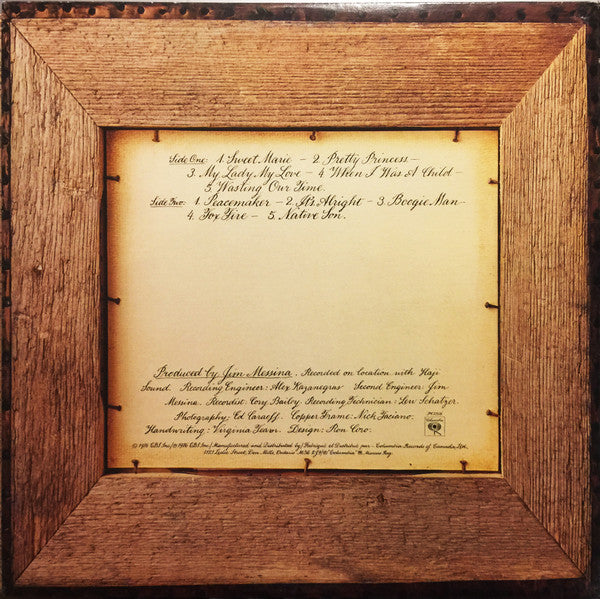 Side One: 1. Sweet Marie — 2. Pretty Princess —
3. My Lady, My Love — 4. When I Was A Child —
5. Wasting Our Time.
Side Two: 1. Peacemaker — 2. It's Alright — 3. Boogie Man —
4. Fox Fire — 5. Native Son.
Produced by Jim Messina. Recorded on location with Haji
Sound. Recording Engineer: Alex Kazanegras Second Engineer: Jim
Messina. Recordist: Cory Bailey Recording Technician: Lew Schatzer.
Photography: Ed Caraeff. Copper Frame: Nick Faciano.
Handwriting: Virginia Teavor. Design: Ron Coro.
© 1976 CBS Inc./℗ 1976 CBS Inc./Manufactured and Distributed by/Fabriqué et Distribué par Columbia Records of Canada, Ltd.
1121 Leslie Street, Don Mills, Ontario "Columbia" Marcas Reg.
Columbia